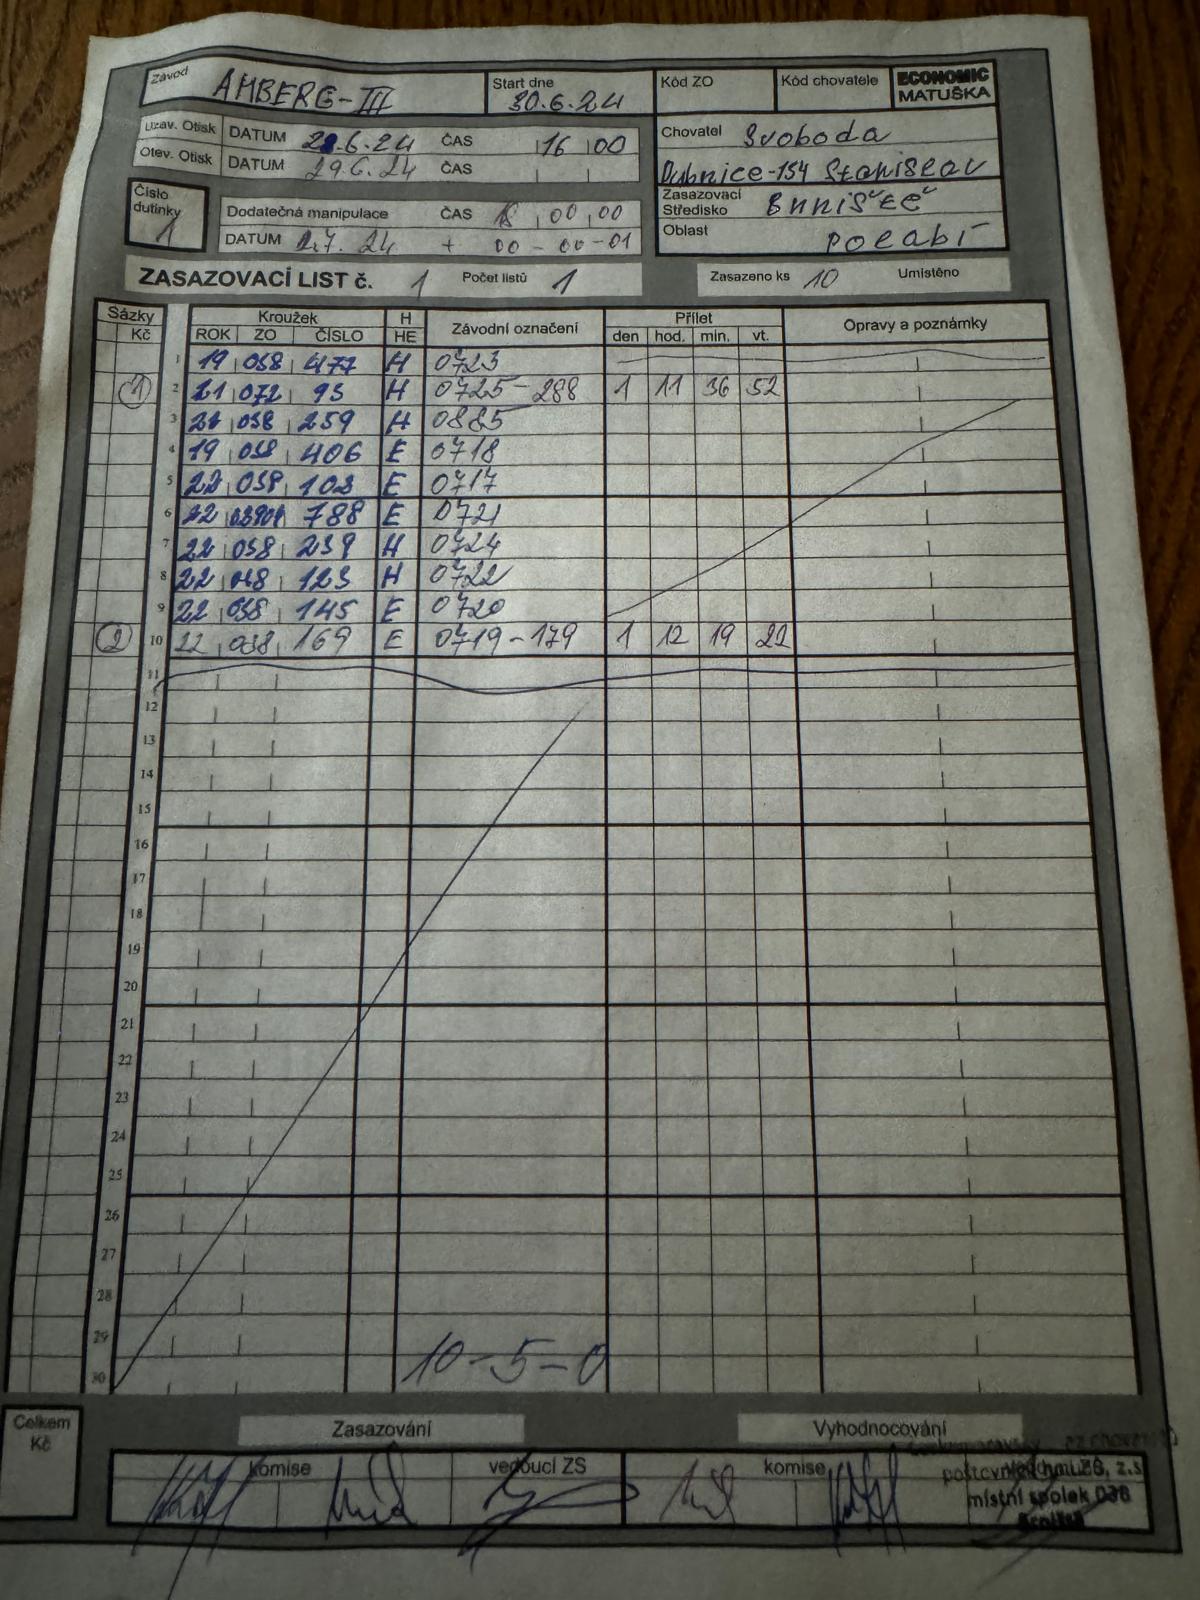 Závod AMBERG-III Start dne 30.6.24 Kód ZO Kód chovatele ECONOMIC MATUŠKA
Uzav. Otisk DATUM 28.6.24 ČAS 16 00
Otev. Otisk DATUM 29.6.24 ČAS
Chovatel Svoboda
Dubnice-154 Stanislav
Číslo dutinky 1
Dodatečná manipulace ČAS 18 00 00
DATUM 1.7.24 + 00-00-01
Zasazovací Středisko BRNIŠŤĚ
Oblast POLABÍ
ZASAZOVACÍ LIST č. 1 Počet listů 1 Zasazeno ks 10 Umístěno
Sázky Kroužek H Závodní označení Přílet Opravy a poznámky
Kč ROK ZO ČÍSLO HE den hod. min. vt.
1 19 038 477 H 0723
1 2 21 072 95 H 0725-288 1 11 36 52
3 038 259 H 0885
4 19 038 406 E 0718
5 22 038 E 0717
6 22 788 E 0721
7 22 038 239 H 0724
8 22 038 123 H 0722
9 22 038 145 E 0720
2 10 22 038 169 E 0719-179 1 12 19 22
11
12
13
14
15
16
17
18
19
20
21
22
23
24
25
26
27
28
29
30
10-5-0
Celkem Kč
Zasazování Vyhodnocování
komise vedoucí ZS komise
místní spolek 038